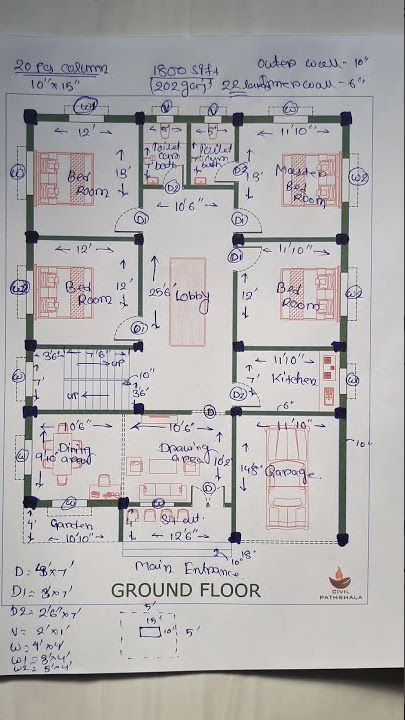 20 pcs column
10"x15"
1800 sqft
(202 gaj)
Outer wall - 10"
wall - 6"
W1
V
V
W
12'
5'
5'
11'10"
Toilet
cum
bath
Toilet
cum
bath
W
13'
Bed
Room
D2
D2
13'
Master
Bed
Room
W2
10'6"
D1
D1
12'
D1
11'10"
W2
Bed
Room
12'
25'6"
Lobby
12'
Bed
Room
W2
D1
3'6"
7'6"
UP
11'10"
W
7'
10"
7'
Kitchen
W
UP
3'6"
D2
6"
10'6"
D
10'6"
11'10"
10"
W
9'10"
Dining
area
Drawing
area
10'2"
14'8"
Garage
D
W
W
4'
Garden
4'
Sit out
10'10"
12'6"
10"
18'
Main Entrance
GROUND FLOOR
CIVIL
PATHSHALA
D1 = 3'x7'
D2 = 2'6"x7'
V = 2'x1'
W = 4'x4'
W1 = 3'x4'
W2 = 5'x4'
5'
15"
10"
5'